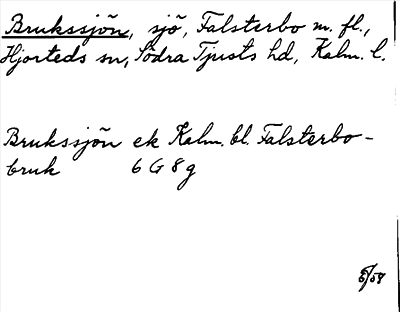 Brukssjön, sjö, Falsterbo m. fl.,
Hjorteds sn, Södra Tjusts hd, Kalm. l.
Brukssjön ek Kalm. bl. Falsterbo-
bruk 6 G 8 g